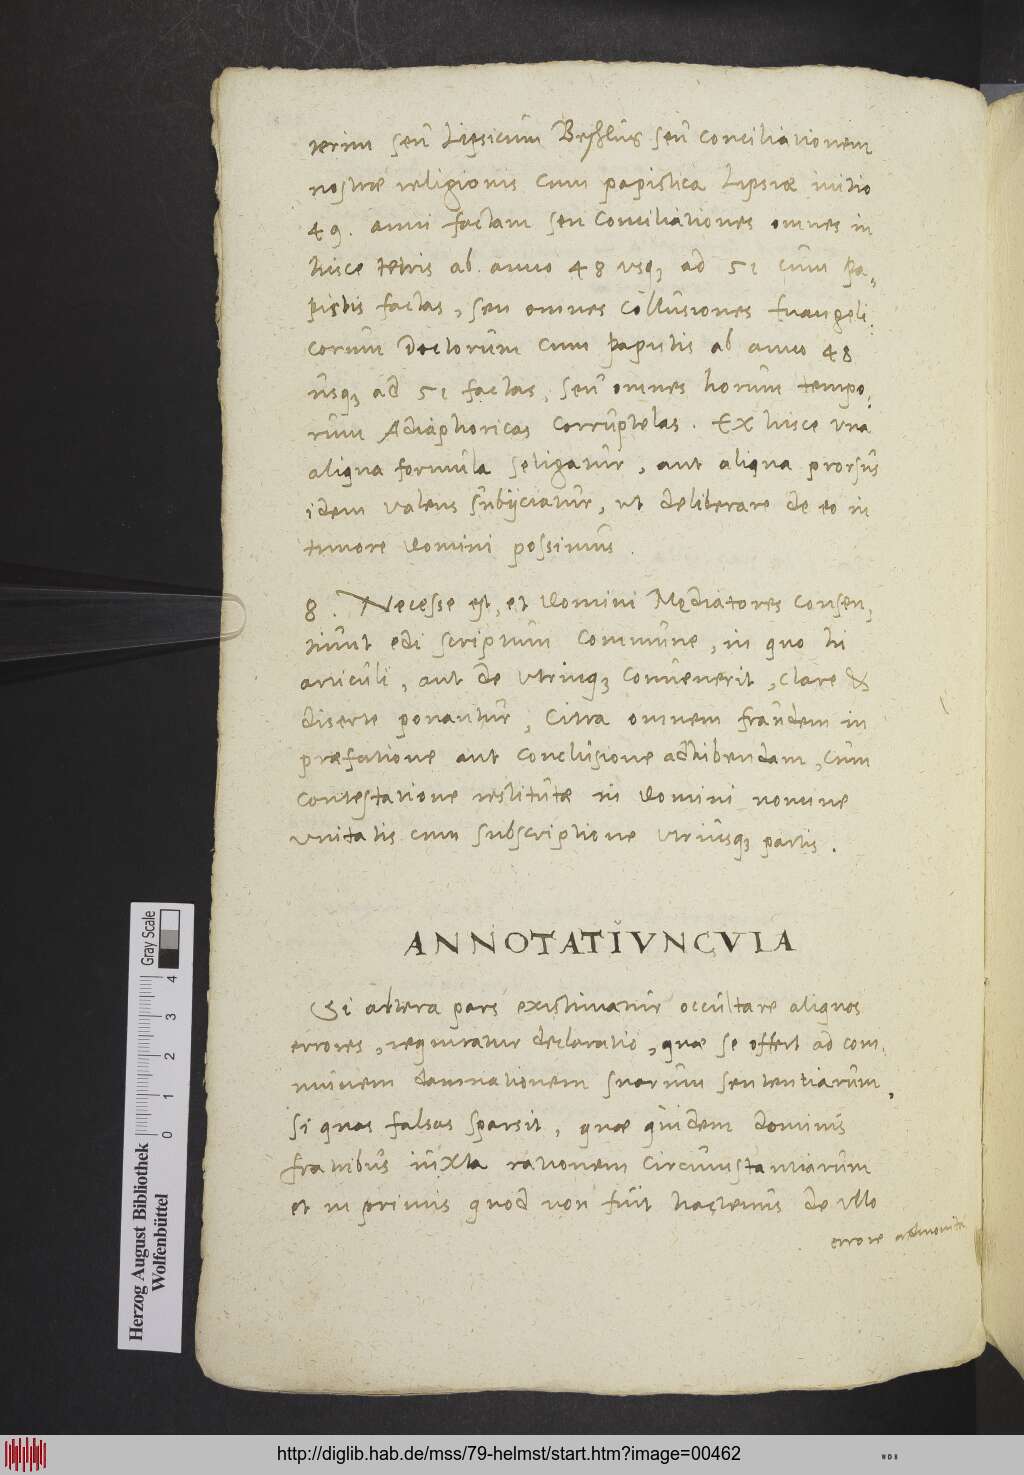 terim seu Lipsicum Beschlus seu conciliationem
nostræ religionis cum papistica Lipsiæ initio
49. anni factam seu Conciliationes omnes in
hisce terris ab anno 48 usq₃ ad 51 cum pa„
pistis factas, seu omnes collusiones Euangeli„
corum Doctorum cum papistis ab anno 48
usq₃ ad 51 factas, seu omnes horum tempo„
rum Adiaphoricas corruptelas. Ex hisce una
aliqua formula seligatur, aut aliqua prorsus
idem valens subijciatur, ut deliberare de eo in
timore Domini possimus.
8. Necesse est, et Domini Mediatores consen„
tiunt edi scriptum commune, in quo hi
articuli, aut de utrinq₃ convenerit, clare &
diserte ponantur, citra omnem fraudem in
præfatione aut conclusione adhibendam, cum
contestatione restitutæ in Domini nomine
unitatis cum subscriptione utriusq₃ partis.
ANNOTATIVNCVLA
Si altera pars existimatur occultare aliquos
errores, requiratur declaratio, quæ se offert ad com„
munem damnationem suarum sententiarum,
si quas falsas sparsit, quæ quidem dominis
fratribus iuxta rationem circumstantiarum
et in primis quod non fuit hactenus de ullo
errore admonita
Herzog August Bibliothek
Wolfenbüttel
0 1 2 3 4
Gray Scale
http://diglib.hab.de/mss/79-helmst/start.htm?image=00462
WDB